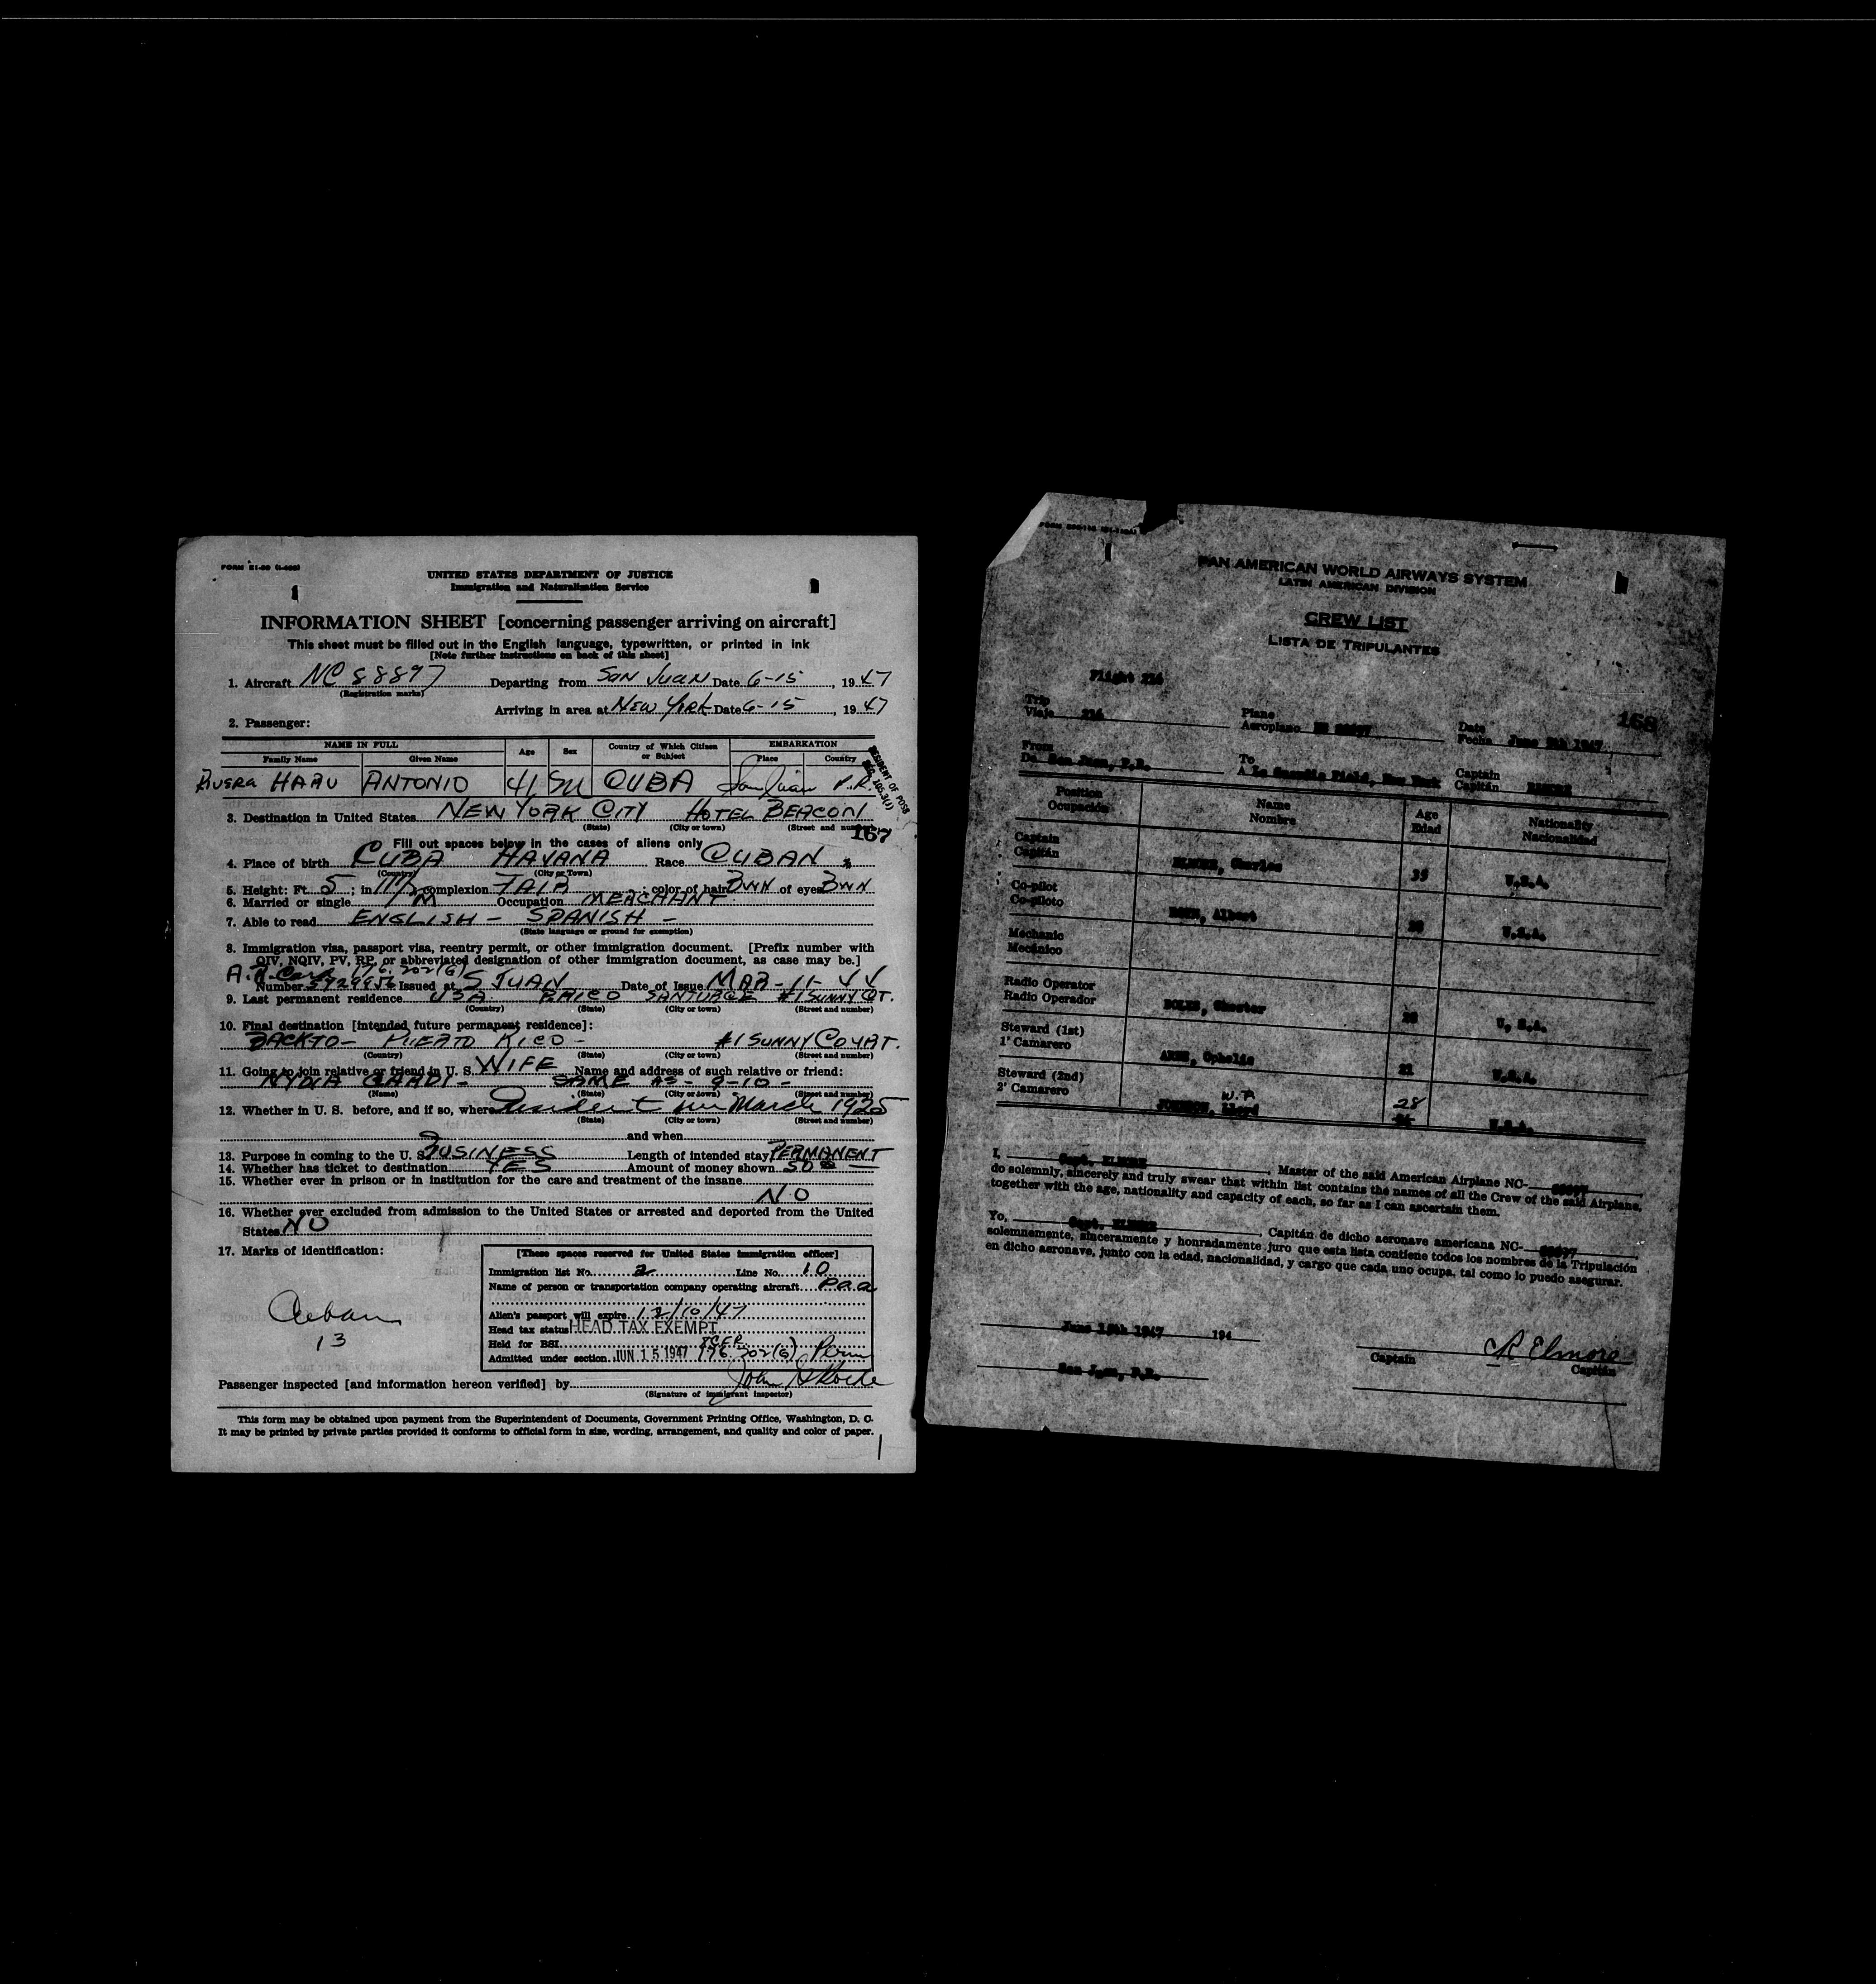 FORM
UNITED STATES DEPARTMENT OF JUSTICE
Immigration and Naturalization Service
INFORMATION SHEET [concerning passenger arriving on aircraft]
This sheet must be filled out in the English language, typewritten, or printed in ink
[Note further instructions on back of this sheet]
1. Aircraft NC 88897 Departing from SAN JUAN Date 6-15, 1947
(Registration marks)
Arriving in area at NEW YORK Date 6-15, 1947
2. Passenger:
NAME IN FULL Age Sex Country of Which Citizen or Subject EMBARKATION
Family Name Given Name Place Country
ANTONIO 41 M CUBA San Juan P.R.
3. Destination in United States NEW YORK CITY HOTEL BEACON
(State) (City or town) (Street and number)
167
Fill out spaces below in the cases of aliens only
4. Place of birth CUBA HAVANA Race CUBAN
(Country) (City or Town)
5. Height: Ft. 5; in 11 1/2 complexion FAIR; color of hair BWN of eyes BWN
6. Married or single M Occupation MERCHANT
7. Able to read ENGLISH - SPANISH -
(State language or ground for exemption)
8. Immigration visa, passport visa, reentry permit, or other immigration document. [Prefix number with
QIV, NQIV, PV, RP, or abbreviated designation of other immigration document, as case may be.]
176.202(G)
Number Issued at S JUAN Date of Issue MAR-11-44
9. Last permanent residence USA. SANTURCE #1 SUNNY CT.
(Country) (State) (City or town) (Street and number)
10. Final destination [intended future permanent residence]:
BACK TO - PUERTO RICO - #1 SUNNY COURT.
(Country) (State) (City or town) (Street and number)
11. Going to join relative or friend in U. S. WIFE Name and address of such relative or friend:
NYDIA SAME AS - 9-10 -
(Name) (State) (City or town) (Street and number)
12. Whether in U. S. before, and if so, where Resident in March 1925
(State) (City or town) (Street and number)
and when
13. Purpose in coming to the U. S. BUSINESS Length of intended stay PERMANENT
14. Whether has ticket to destination YES Amount of money shown 50
15. Whether ever in prison or in institution for the care and treatment of the insane
NO
16. Whether ever excluded from admission to the United States or arrested and deported from the United
States NO
17. Marks of identification:
Cuban
13
[These spaces reserved for United States immigration officer]
Immigration list No. 2 Line No. 10
Name of person or transportation company operating aircraft Paa
Alien's passport will expire 12/10/47
Head tax status HEAD TAX EXEMPT
Held for BSI
Admitted under section JUN 15 1947 176.202(G) Perm
Passenger inspected [and information hereon verified] by John
(Signature of immigrant inspector)
This form may be obtained upon payment from the Superintendent of Documents, Government Printing Office, Washington, D. C.
It may be printed by private parties provided it conforms to official form in size, wording, arrangement, and quality and color of paper.
PAN AMERICAN WORLD AIRWAYS SYSTEM
LATIN AMERICAN DIVISION
CREW LIST
LISTA DE TRIPULANTES
Flight 216
168
Trip
Viaje 216
Plane
Aeroplano
Date
Fecha 1947
From
De San Juan, P.R.
To
A La Guardia Field, New York
Captain
Capitán ELMORE
Position
Ocupación
Name
Nombre
Age
Edad
Nationality
Nacionalidad
Captain
Capitán ELMORE, Charles 35 U.S.A.
Co-pilot
Co-piloto Albert U.S.A.
Mechanic
Mecánico
Radio Operator
Radio Operador BOLES, Chester U, S.A.
Steward (1st)
1' Camarero Ophelia 21 U.S.A.
Steward (2nd)
2' Camarero JOHNSON, Lloyd W.P. 28 U.S.A.
I, Capt. ELMORE, Master of the said American Airplane NC-
do solemnly, sincerely and truly swear that within list contains the names of all the Crew of the said Airplane,
together with the age, nationality and capacity of each, so far as I can ascertain them.
Yo, Capt. ELMORE, Capitán de dicho aeronave americana NC-
solemnemente, sinceramente y honradamente juro que esta lista contiene todos los nombres de la Tripulación
en dicho aeronave, junto con la edad, nacionalidad, y cargo que cada uno ocupa, tal como lo puedo asegurar.
June 15th 1947 194
Elmore
Captain Capitán
San Juan, P.R.